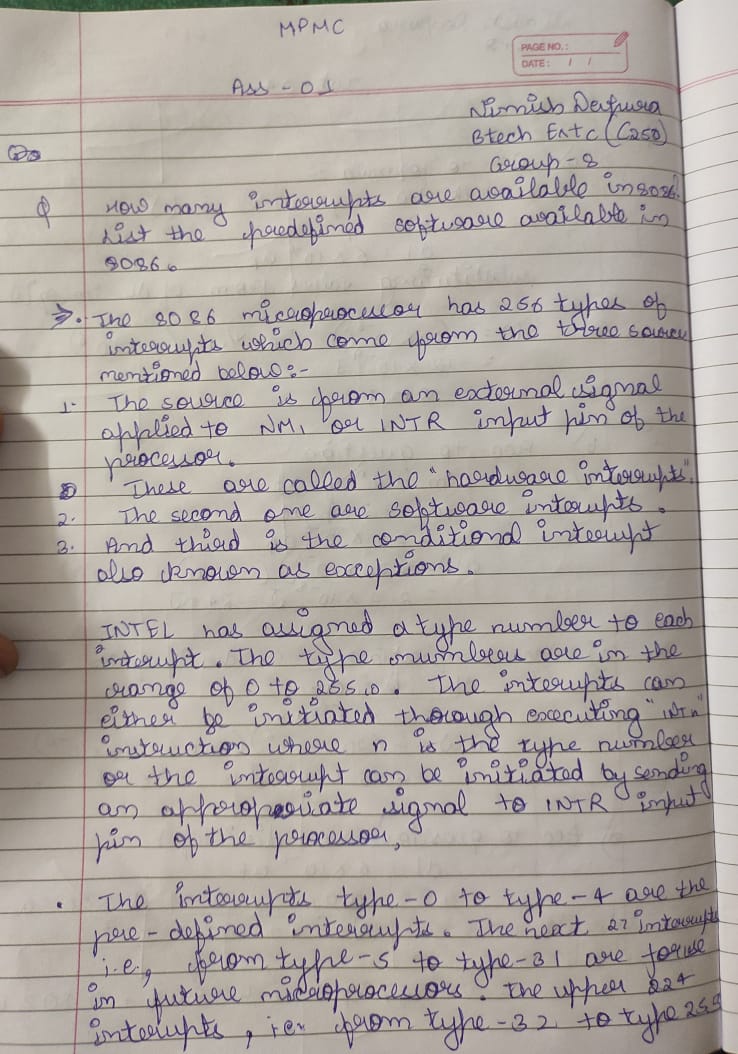 MPMC
PAGE NO.:
DATE: / /
Ass - 01
Nimish Dafura
Btech Entc (C250)
Group - 8
Q How many interrupts are available in 8086.
List the predefined software available in
8086.
⇒. The 8086 microprocessor has 256 types of
interrupts which come from the three source
mentioned below:-
1- The source is from an external signal
applied to NMI or INTR input pin of the
processor.
These are called the "hardware interrupts".
2. The second one are software interupts.
3. And third is the conditional interupt
also known as exceptions.
INTEL has assigned a type number to each
interupt. The type numbers are in the
range of 0 to 255,0. The interupts can
either be initiated through executing "INTn"
instruction where n is the type number
or the interrupt can be initiated by sending
an appropriate signal to INTR input
pin of the processor,
. The interrupts type-0 to type-4 are the
pre-defined interrupts. The next 27 interrupts
i.e., from type-5 to type-31 are for use
in future microprocessors. The upper 224
interupts, i.e. from type-32 to type 255